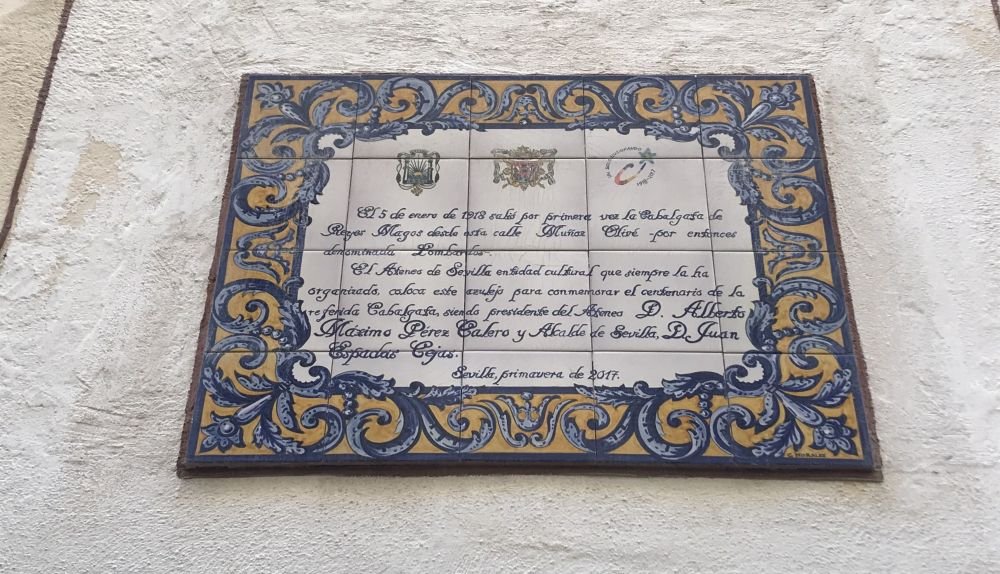 CONMEMORANDO
1918-2017
El 5 de enero de 1918 salió por primera vez la Cabalgata de
Reyes Magos desde esta calle Muñoz Olivé -por entonces
denominada Lombardos-.
El Ateneo de Sevilla entidad cultural que siempre la ha
organizado, coloca este azulejo para conmemorar el centenario de la
referida Cabalgata, siendo presidente del Ateneo D. Alberto
Máximo Pérez Calero y Alcalde de Sevilla, D. Juan
Espadas Cejas.
Sevilla, primavera de 2017.
G. MORALES